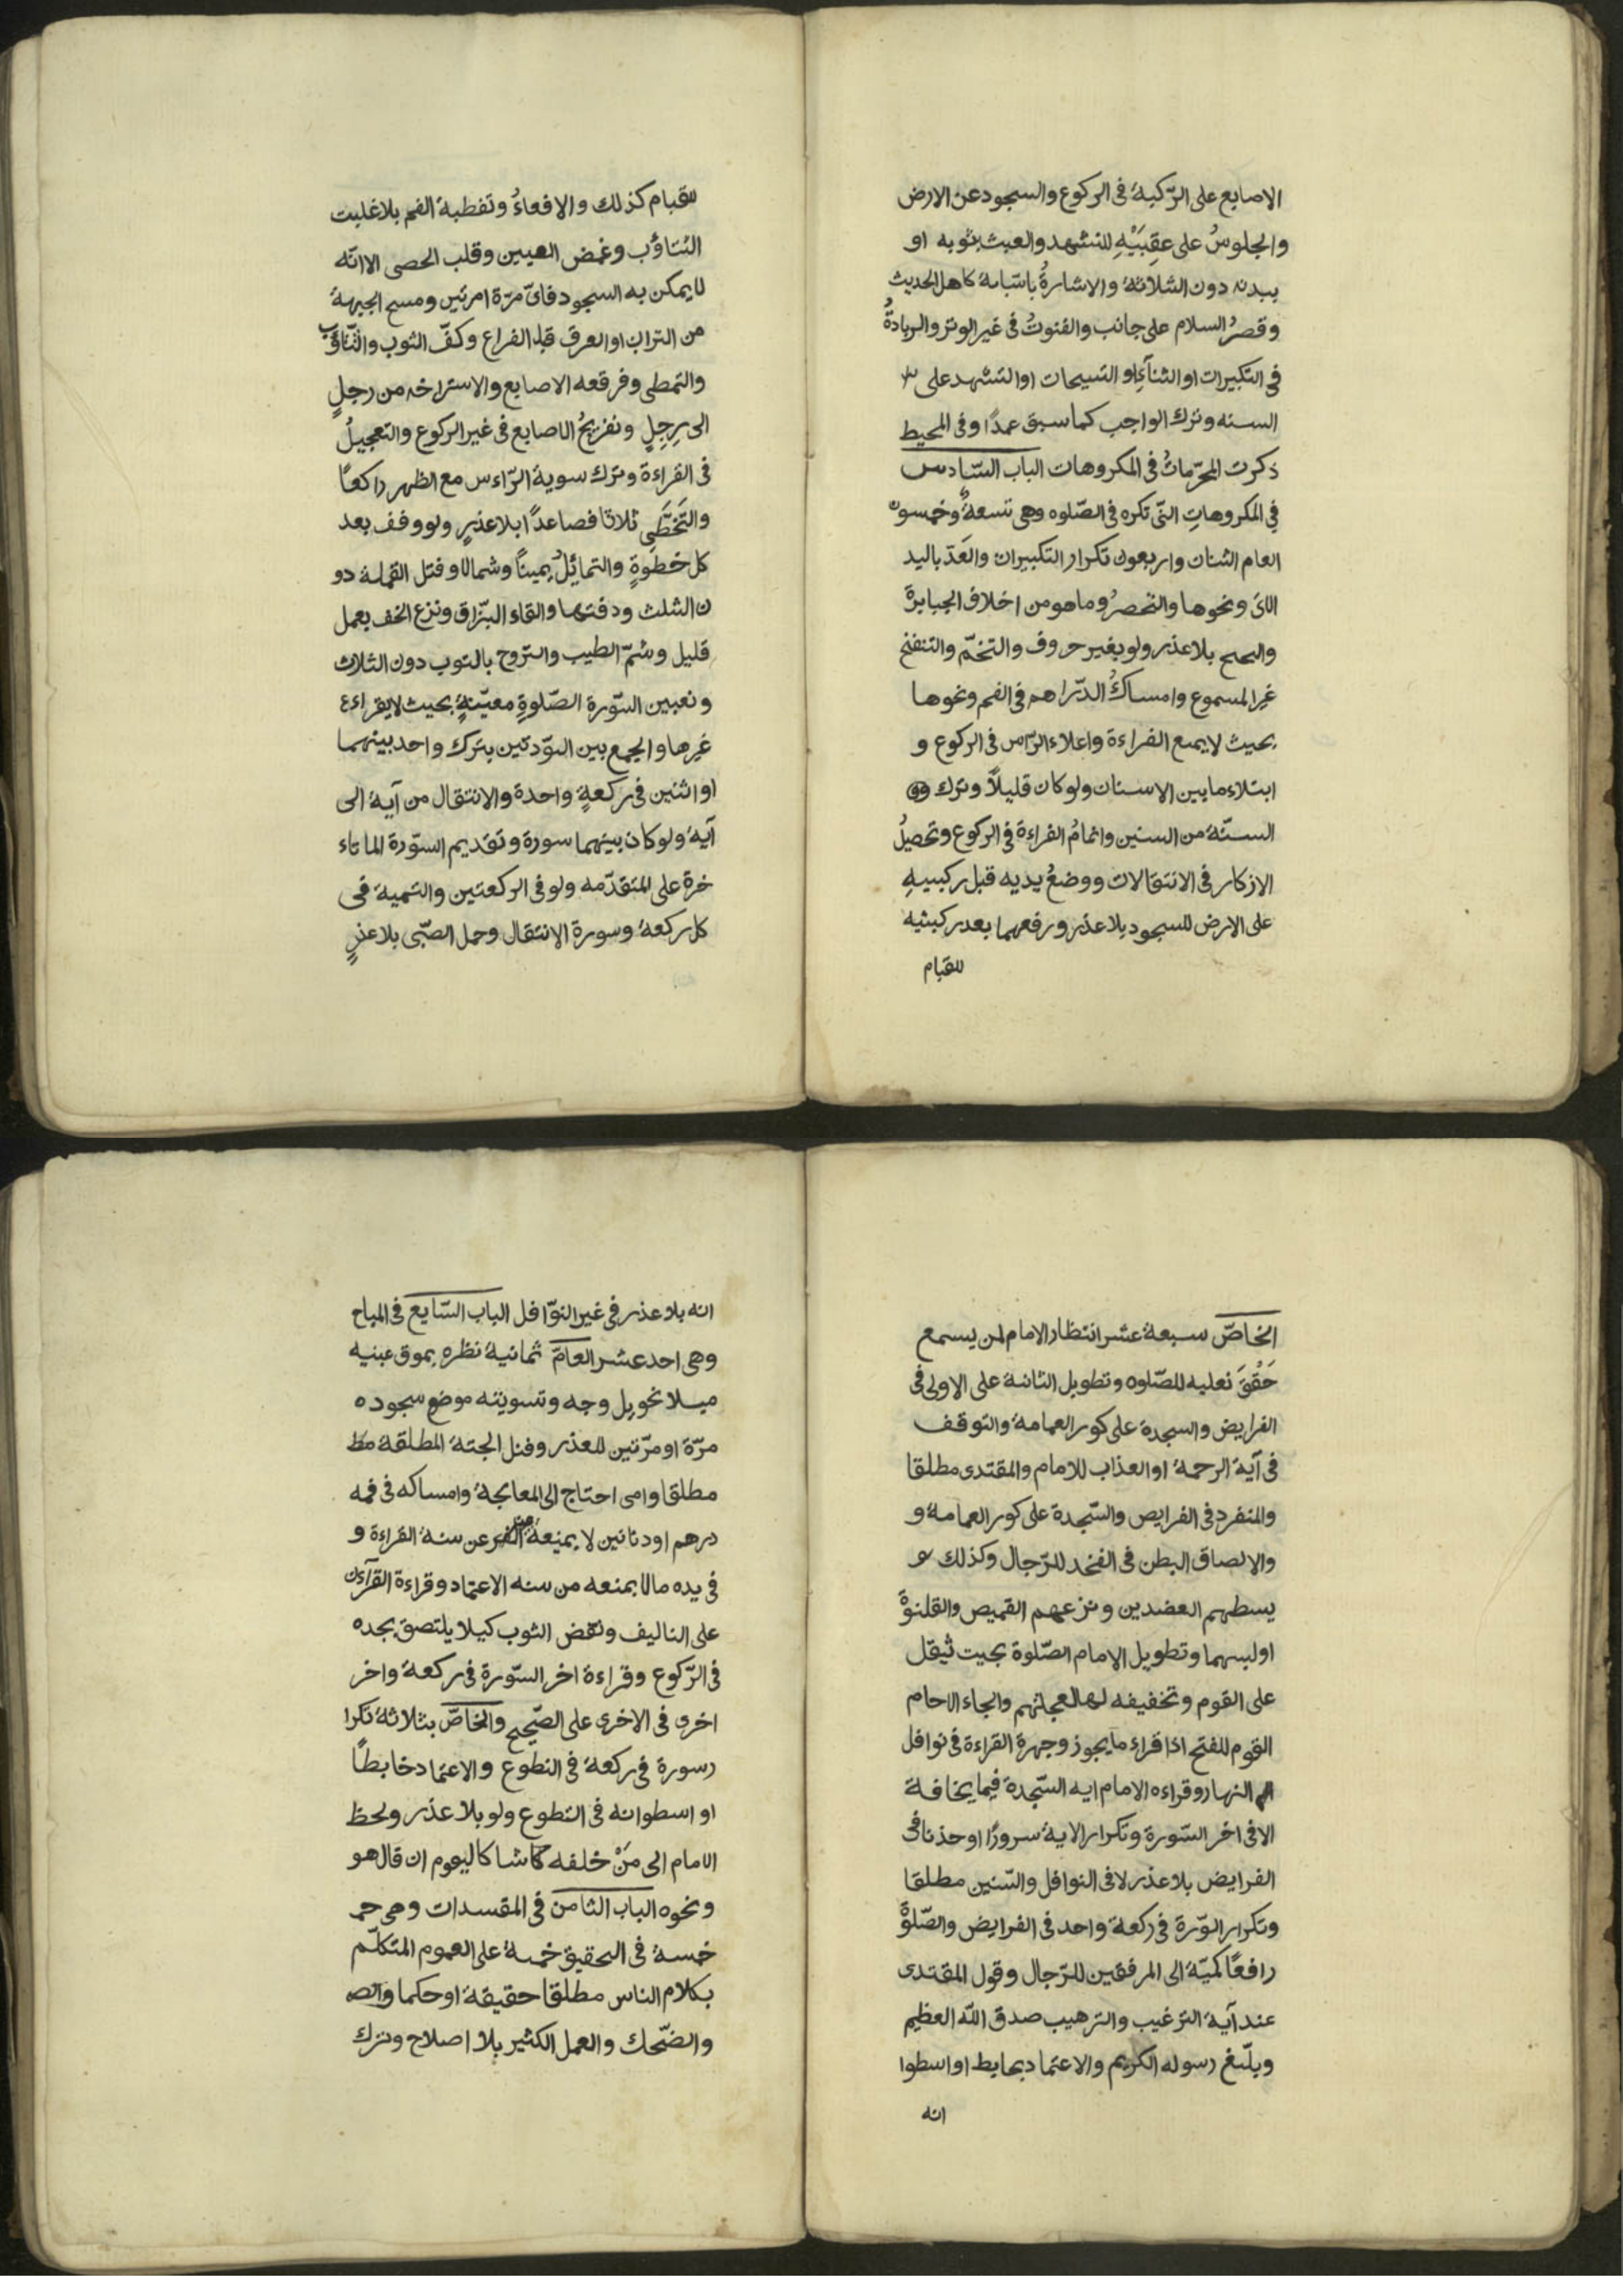 الاصابع على الرّكبة فى الركوع والسجود عن الارض
والجلوسُ على عقبَيْهِ للتشهد والعبث بثوبه او
ببدنه دون الثلاثة والاشارةُ باسّبابة كاهل الحديث
وقصرُ السلام على جانب والقنوتُ فى غير الوتر والزيادةُ
فى التكبيرات او الثنآءِ او التسبيحات او التشهد على
السنه وترك الواجب كما سبق عمدًا وفى المحيط
ذكرت المحرّماتُ فى المكروهات الباب السّادس
فى المكروهاتِ التّى تكره فى الصّلوه وهى تسعةٌ وخمسون
العام اثنان واربعون تكرار التكبيرات والعَدّ باليد
الاىَ ونحوها والتحصرُ وما هو من اخلاف الجبابرة
والنحنح بلا عذر ولو بغير حروف والتنخّم والتنفنخ
غير المسموع وامساكُ الدّراهم فى الفم ونحوها
بحيث لا يمنع القراءة واعلاء الرّاس فى الركوع و
ابتلاء ما بين الاسنان ولو كان قليلاً وترك
السنّة من السنين واتمامُ القراءة فى الركوع وتحصيلُ
الاذكار فى الانتقالات ووضعُ يديه قبل ركبتيهِ
على الارض للسجود بلا عذر ورفعهما بعد ركبتيه
للقيام
للقيام كذلك والاقعاءُ وتغطية الفم بلا غلبت
التثاؤب وغمض العينين وقلب الحصى الا انّه
لا يمكن به السجود فاىّ مرّة امرتين ومسح الجبهة
من التراب او العرق قبل الفراغ وكفّ الثوب والتّثاؤب
والتمطى وفرقعه الاصابع والاستراخه من رجلٍ
الى رِجِلٍ وتفريجُ الاصابع فى غير الركوع والتعجيلُ
فى القراءة وترك سوية الرّاءس مع الظهر راكعًا
والتَخَطَّى ثلاثا فصاعدًا بلا عذرٍ ولو وقف بعد
كل خطوةٍ والتمائِلُ يمينًا وشمالا وقتل القملة دو
ن الثلث ودفنها والقاء البزّاق ونزع الخف بعمل
قليل وشمّ الطيب والتروح بالثوب دون الثلاث
وتعيين السّورة الصّلوةِ معيّنةٍ بحيث لا يقراءء
غيرها والجمع بين السّورتين بترك واحد بينهما
او اثنين فى ركعةٍ واحدة والانتقال من آية الى
آية ولو كان بينهما سورة وتقديم السّورة الماتاء
خرة على المتقدّمه ولو فى الركعتين والتسمية فى
كل ركعة وسورة الانتقال وحمل الصّبّى بلا عذرٍ
الخاصّ سبعة عشر انتظار الامام لمن يسمع
حَقْقَ نعليه للصّلوه وتطويل الثانية على الاولى فى
الفرايض والسجدة على كور العمامة والتوقف
فى آية الرحمة او العذاب للامام والمقتدى مطلقا
والمنفرد فى الفرايض والسّجدة على كور العمامة و
والالصاق البطن فى الفخد للرّجال وكذلك
يسطهم العضدين ونزعهم القميص والقلنوةَ
او لبسهما وتطويل الامام الصّلوة بحيث ثيقل
على القوم وتخفيفه لها لعجلتهم والجاء الامام
القوم للفتح اذا قراء ما يجوز وجهرة القراءة فى نوافل
النهار وقراءه الامام ايه السّجدة فيما يخافة
الا فى اخر السّورة وتكرار الاية سرورًا او حذنا فى
الفرايض بلا عذر لا فى النوافل والسّنين مطلقا
وتكرار السّورة فى ركعة واحد فى الفرايض والصّلوةُ
رافعًا كميّة الى المرفقين للرّجال وقول المقتدى
عند آية الترغيب والترهيب صدق الله العظيم
وبلّغ رسوله الكريم والاعتماد بحايط او اسطوا
انه
انه بلا عذر فى غير النوّافل الباب السّابع فى المباح
وهى احد عشر العامّ ثمانية نظره بموق عينيه
ميلا تحويل وجه وتسويته موضع سجوده
مرّة او مرّتين للعذر وقتل الجتة المطلقة مط
مطلقا وامى احتاج الى المعالجة وامساكه فى فمه
درهم او دنانين لا يمنعة عن سنة القراءة و
فى يده مالا يمنعه من سنه الاعتماد وقراءة القرآءن
على التاليف ونقض الثوب كيلا يلتصق بجده
فى الرّكوع وقراءة اخر السّورة فى ركعة واخر
اخرى فى الاخرى على الصّحيح والخاصّ بثلاثة تكرا
رسورة فى ركعة فى التطوع والاعتماد خابطًا
او اسطوانه فى التطوع ولو بلا عذر ولحظ
الامام الى مَنْ خلفه كاشا كاليعوم ان قال هو
ونحوه الباب الثامن فى المفسدات وهى حمـ
خمسة فى التحقيق خمسة على العموم المتكلّم
بكلام الناس مطلقا حقيقة او حكما والصـ
والضّحك والعمل الكثير بلا اصلاح وترك